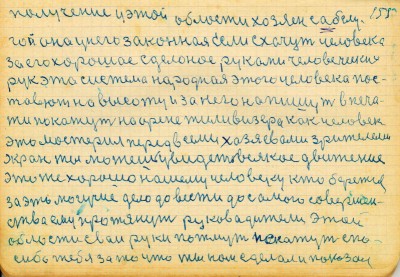 получение и этой области хозяен сабсц. 155
гой она у него законная если схачут человека
за его хорошае сделоное руками человечиния
рук эта система народная этого человека пос-
тавют на высоту и за него напишут в печа-
ти покажут на орене тиливизера как человек
это мостерил перед всеми хозяевами зрителеми
экран ты можеш увидеть всякое движение
это же хорошо нашему человеку кто бережец
за эть могучие дело довести до самого совершен-
ства ему протянут руководители этой
области сваи руки пожмут искажут спо-
сибо тебя за то что ты нам сделал и показал